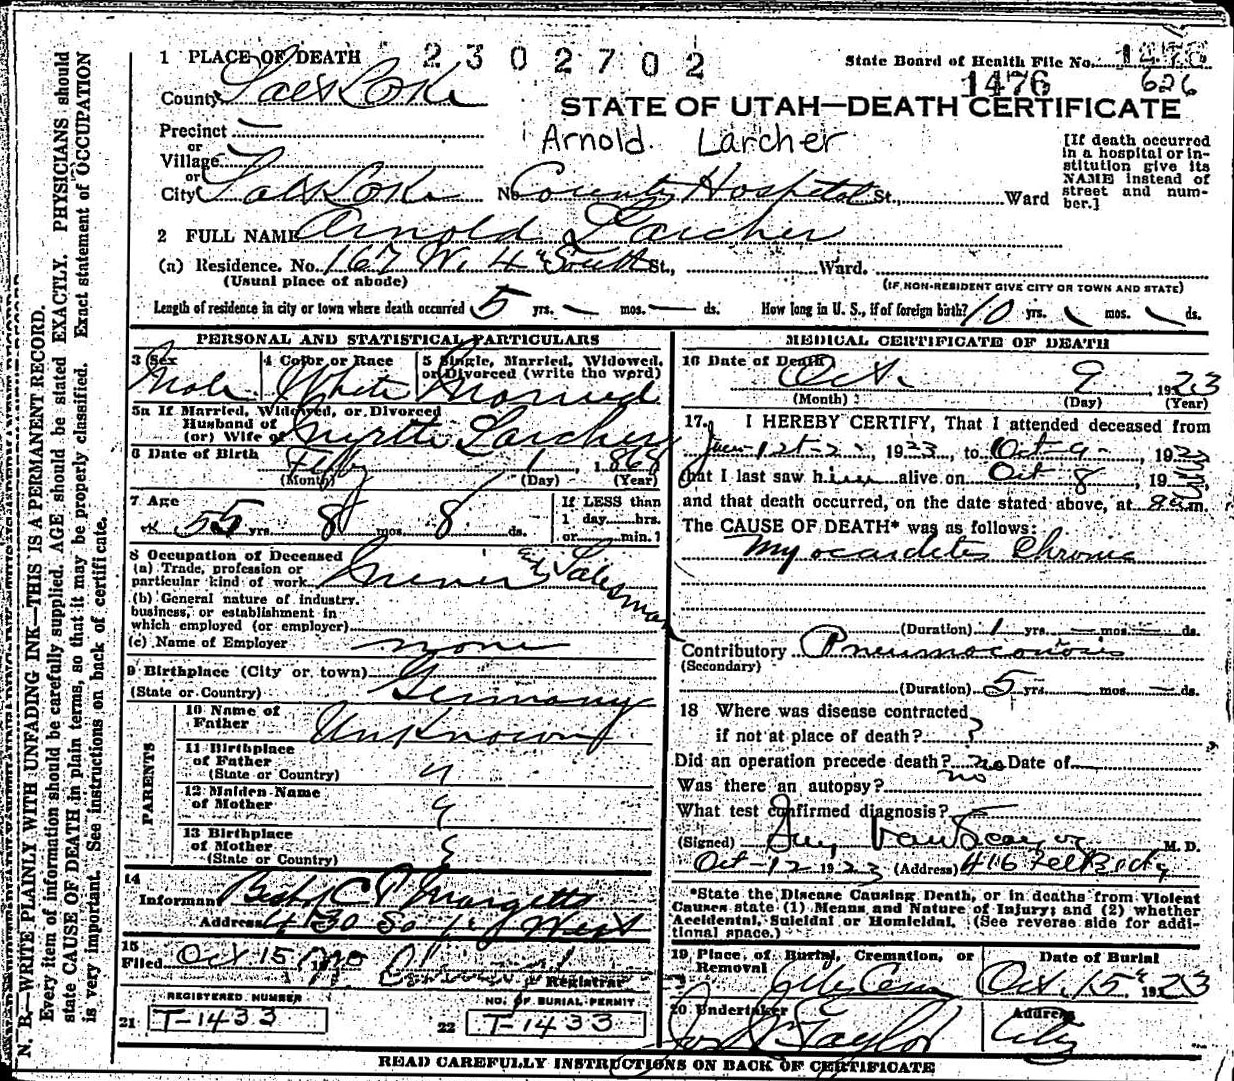 1 PLACE OF DEATH 2302702
State Board of Health File No. 1476
1476 626
County Salt Lake
STATE OF UTAH—DEATH CERTIFICATE
Arnold Larcher
Precinct —
or
Village
or
City Salt Lake No. County Hospital St., Ward
[If death occurred in a hospital or institution give its NAME instead of street and number.]
2 FULL NAME Arnold Larcher
(a) Residence. No. 167 W. 4th South St., Ward.
(Usual place of abode) (IF NON-RESIDENT GIVE CITY OR TOWN AND STATE)
Length of residence in city or town where death occurred 5 yrs. — mos. — ds. How long in U. S., if of foreign birth? 10 yrs. mos. ds.
PERSONAL AND STATISTICAL PARTICULARS
3 Sex Male
4 Color or Race White
5 Single, Married, Widowed, or Divorced (write the word) Married
5a If Married, Widowed, or Divorced
Husband of
(or) Wife of Myrtle Larcher
6 Date of Birth Feby 1, 1868
(Month) (Day) (Year)
7 Age 55 yrs. 8 mos. 8 ds.
If LESS than
1 day......hrs.
or......min.?
8 Occupation of Deceased
(a) Trade, profession or
particular kind of work Miner & Salesman
(b) General nature of industry.
business, or establishment in
which employed (or employer)
(c) Name of Employer none
9 Birthplace (City or town)
(State or Country) Germany
PARENTS
10 Name of
Father Unknown
11 Birthplace
of Father
(State or Country) "
12 Maiden Name
of Mother
13 Birthplace
of Mother
(State or Country)
14
Informant C P Margetts
Address So West
15
Filed Oct 15, Registrar
REGISTERED NUMBER
21 T-1433
NO. OF BURIAL PERMIT
22 T-1433
MEDICAL CERTIFICATE OF DEATH
16 Date of Death Oct. 9 1923
(Month) (Day) (Year)
17. I HEREBY CERTIFY, That I attended deceased from
1923, to Oct-9-, 192
that I last saw him alive on Oct 8, 19
and that death occurred, on the date stated above, at m.
The CAUSE OF DEATH* was as follows:
Myocarditis Chronic
(Duration) 1 yrs. — mos. — ds.
Contributory Pneumoconiosis
(Secondary)
(Duration) 5 yrs. mos. — ds.
18 Where was disease contracted
if not at place of death? ?
Did an operation precede death? no Date of —
Was there an autopsy? no
What test confirmed diagnosis?
(Signed) M. D.
Oct-12 1923 (Address) 416
*State the Disease Causing Death, or in deaths from Violent
Causes state (1) Means and Nature of Injury; and (2) whether
Accidental, Suicidal or Homicidal. (See reverse side for additional space.)
19 Place of Burial, Cremation, or
Removal City Cem
Date of Burial
Oct. 15, 1923
20 Undertaker Taylor
Address City
READ CAREFULLY INSTRUCTIONS ON BACK OF CERTIFICATE
N. B.—WRITE PLAINLY WITH UNFADING INK—THIS IS A PERMANENT RECORD.
Every item of information should be carefully supplied. AGE should be stated EXACTLY. PHYSICIANS should
state CAUSE OF DEATH in plain terms, so that it may be properly classified. Exact statement of OCCUPATION
is very important. See instructions on back of certificate.